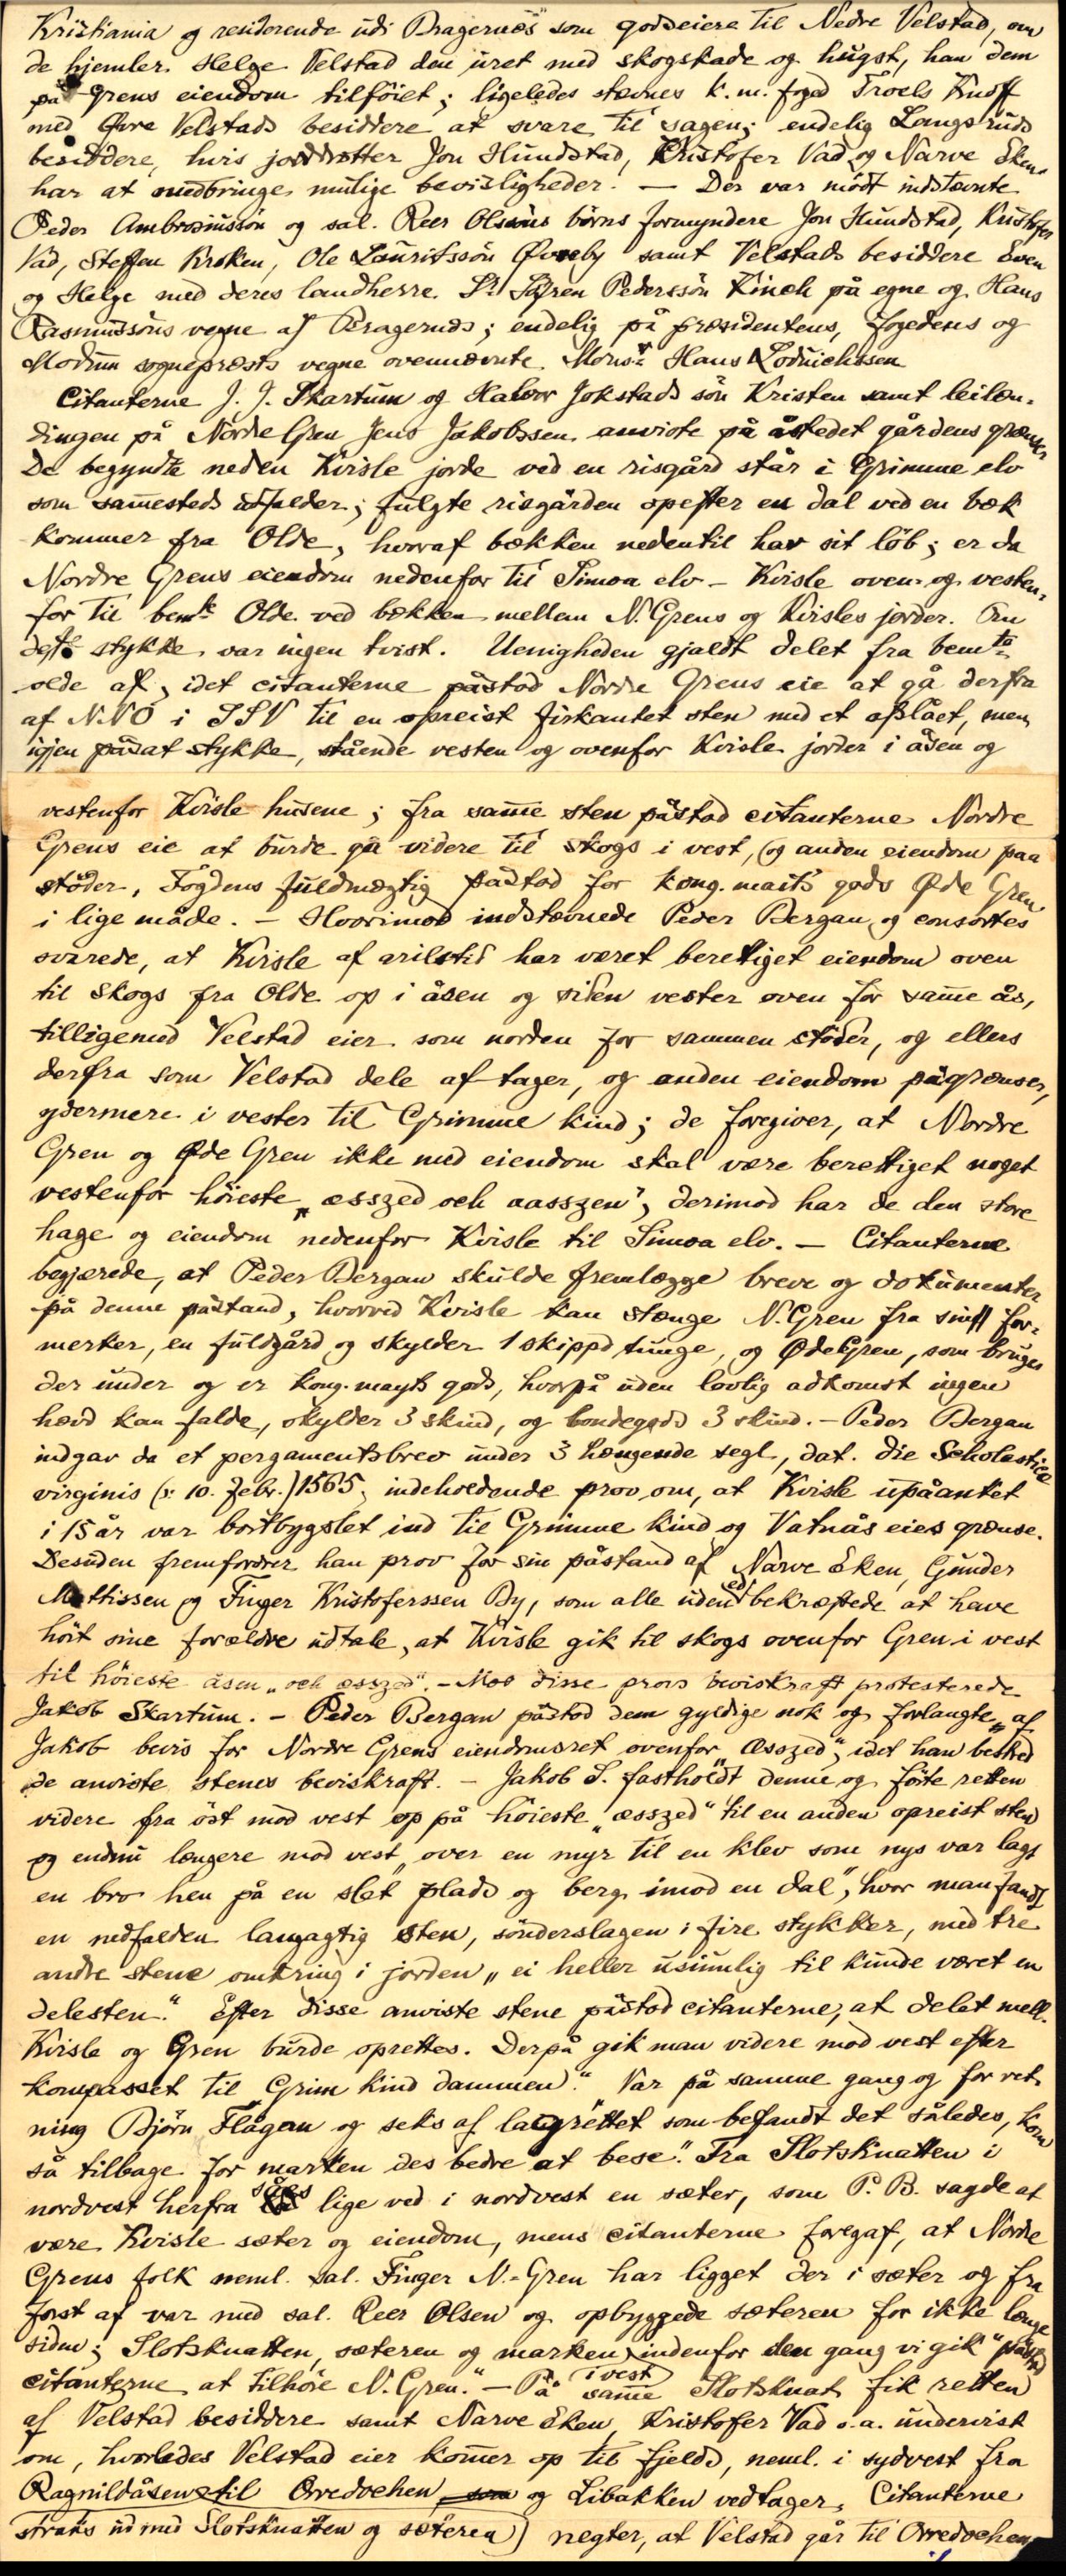 Kristiania og residerende udi Bragernæs som godseiere til Nedre Velstad, om
de hjemler Helge Velstad den uret med skogskade og hugst, han dem
på Grens eiendom tilföiet; ligeledes stevnes k. m. foged Troels Knoff
med Øvre Velstads besiddere at svare til sagen; endelig Langsruds
besiddere, hvis jorddrotter Jon Hundstad, Kristofer Vad og Narve Eken
har at medbringe mulige bevisligheder. — Der var mödt indstævnte
Peder Ambrosiussön og sal. Reer Olsöns börns formyndere Jon Hundstad, Kristofer
Vad, Steffen Kroken, Ole Lauritssön Øvreby samt Velstads besiddere Even
og Helge med deres landherre Sr. Søfren Pederssön Kinck på egne og Hans
Rasmussöns vegne af Bragernæs; endelig på præsidentens, fogedens og
Modum sogneprests vegne ovennævnte Monsr. Hans Lodvichssen
Citanterne J. J. Skartum og Halvor Jokstads sön Kristen samt leilæn-
dingen på Nordre Gren Jens Jakobssen anviste på åstedet gårdens grænser
De begyndte neden Kvisle jorde ved en risgård står i Grimme elv
som sam̄esteds udfalder; fulgte risgården opefter en dal ved en bæk
kommer fra Olde, hvoraf bækken nedentil har sit löb; er da
Nordre Grens eiendom nedenfor til Simoa elv – Kvisle oven- og vesten-
for til bemte Olde ved bækken mellem N. Grens og Kvisles jorder. Om
dette stykke var ingen tvist. Uenigheden gjaldt delet fra bemte
olde af, idet citanterne påstod Nordre Grens eie at gå derfra
af N.N.Ö i S S V til en opreist firkantet sten med et afslået, men
igjen påsat stykke, stående vesten og ovenfor Kvisle jorder i åsen og
vestenfor Kvisle husene; fra sam̄e sten påstod citanterne Nordre
Grens eie at burde gå videre til skogs i vest, (og anden eiendom paa
stöder, Fogdens fuldmægtig påstod for kong. maits gods Øde Gren
i lige måde. – Hvorimod indstævnede Peder Bergan og consortes
svarede, at Kvisle af arilstid har været berettiget eiendom oven
til skogs fra Olde op i åsen og siden vester oven for sam̄e ås,
tilligemed Velstad eier som norden for sammen stöder, og ellers
derfra som Velstad dele af tager, og anden eiendom pågrænser,
ydermere i vester til Grimme kind; de foregiver, at Nordre
Gren og Øde Gren ikke med eiendom skal være berettiget noget
vestenfor höieste „æsszed och aasszen", derimod har de den store
hage og eiendom nedenfor Kvisle til Simoa elv. — Citanterne
begjærede, at Peder Bergan skulde fremlægge breve og dokumenter
på denne påstand, hvorved Kvisle kan stænge N. Gren fra sin for-
merker, en fuldgård og skylder 1 skippd tunge, og Øde Gren, som bruges
der under og er kong. mayts gods, hvorpå uden lovlig adkomst ingen
hævd kan falde, skylder 3 skind, og bondegods 3 skind. – Peder Bergan
indgav da et pergamentsbrev under 3 hængende segl, dat. die Scholasticæ
virginis (ɔ: 10. febr.) 1565, indeholdende prov om, at Kvisle upåanket
i 15 år var bortbygslet ind til Grimme kind og Vatnås eies grænse.
Desuden fremfordrer han prov for sin påstand af Narve Eken, Gunder
Mattissen og Finger Kristoferssen By, som alle uden ed bekræftede at have
hört sine forældre udtale, at Kvisle gik til skogs ovenfor Gren i vest
til höieste åsen „och æsszed". – Mod disse provs beviskraft protesterede
Jakob Skartum. – Peder Bergan påstod dem gyldige nok og forlangte af
Jakob bevis for Nordre Grens eiendomsret ovenfor „æsszed", idet han bestred
de anviste stenes beviskraft. – Jakob S. fastholdt denne og förte retten
videre fra öst mod vest op på höieste „æsszed" til en anden opreist sten
og endnu længere mod vest „over en myr til en klev som nys var lagt
en bro hen på en slet plads og berg imod en dal", hvor man fandt
en nedfalden langagtig sten, sönderslagen i fire stykker, med tre
andre stene omkring i jorden „ei heller usiunlig til kunde været en
delesten." Efter disse anviste stene påstod citanterne, at delet mell.
Kvisle og Gren burde oprettes. Derpå gik man videre mod vest efter
kompasset til „Grim kind dammen." Var på samme gang og for ret-
ning Björn Flågan og seks af lagrettet som befandt det således, kom
så tilbage for marken des bedre at bese." Fra Slotsknatten i
nordvest herfra såes lige ved i nordvest en sæter, som P. B. sagde at
være Kvisle sæter og eiendom, mens citanterne foregaf, at Nordre
Grens folk neml. sal. Finger N.-Gren har ligget der i sæter og fra
först af var med sal. Reer Olsen og opbyggede sæteren for ikke længe
siden; Slotsknatten, sæteren og marken indenfor den gang vi gik" påstod
citanterne at tilhöre N. Gren." – På sam̄e i vest Slotsknat fik retten
af Velstad besiddere samt Narve Eken, Kristofer Vad o.a. undervist
om, hvorledes Velstad eier kom̄er op til fjelds, neml. i sydvest fra
Ragnildåsen til Orredoehen og Libakken vedtager, Citanterne
straks ud med Slotsknatten og sæteren) negter, at Velstad går til Orredoehen